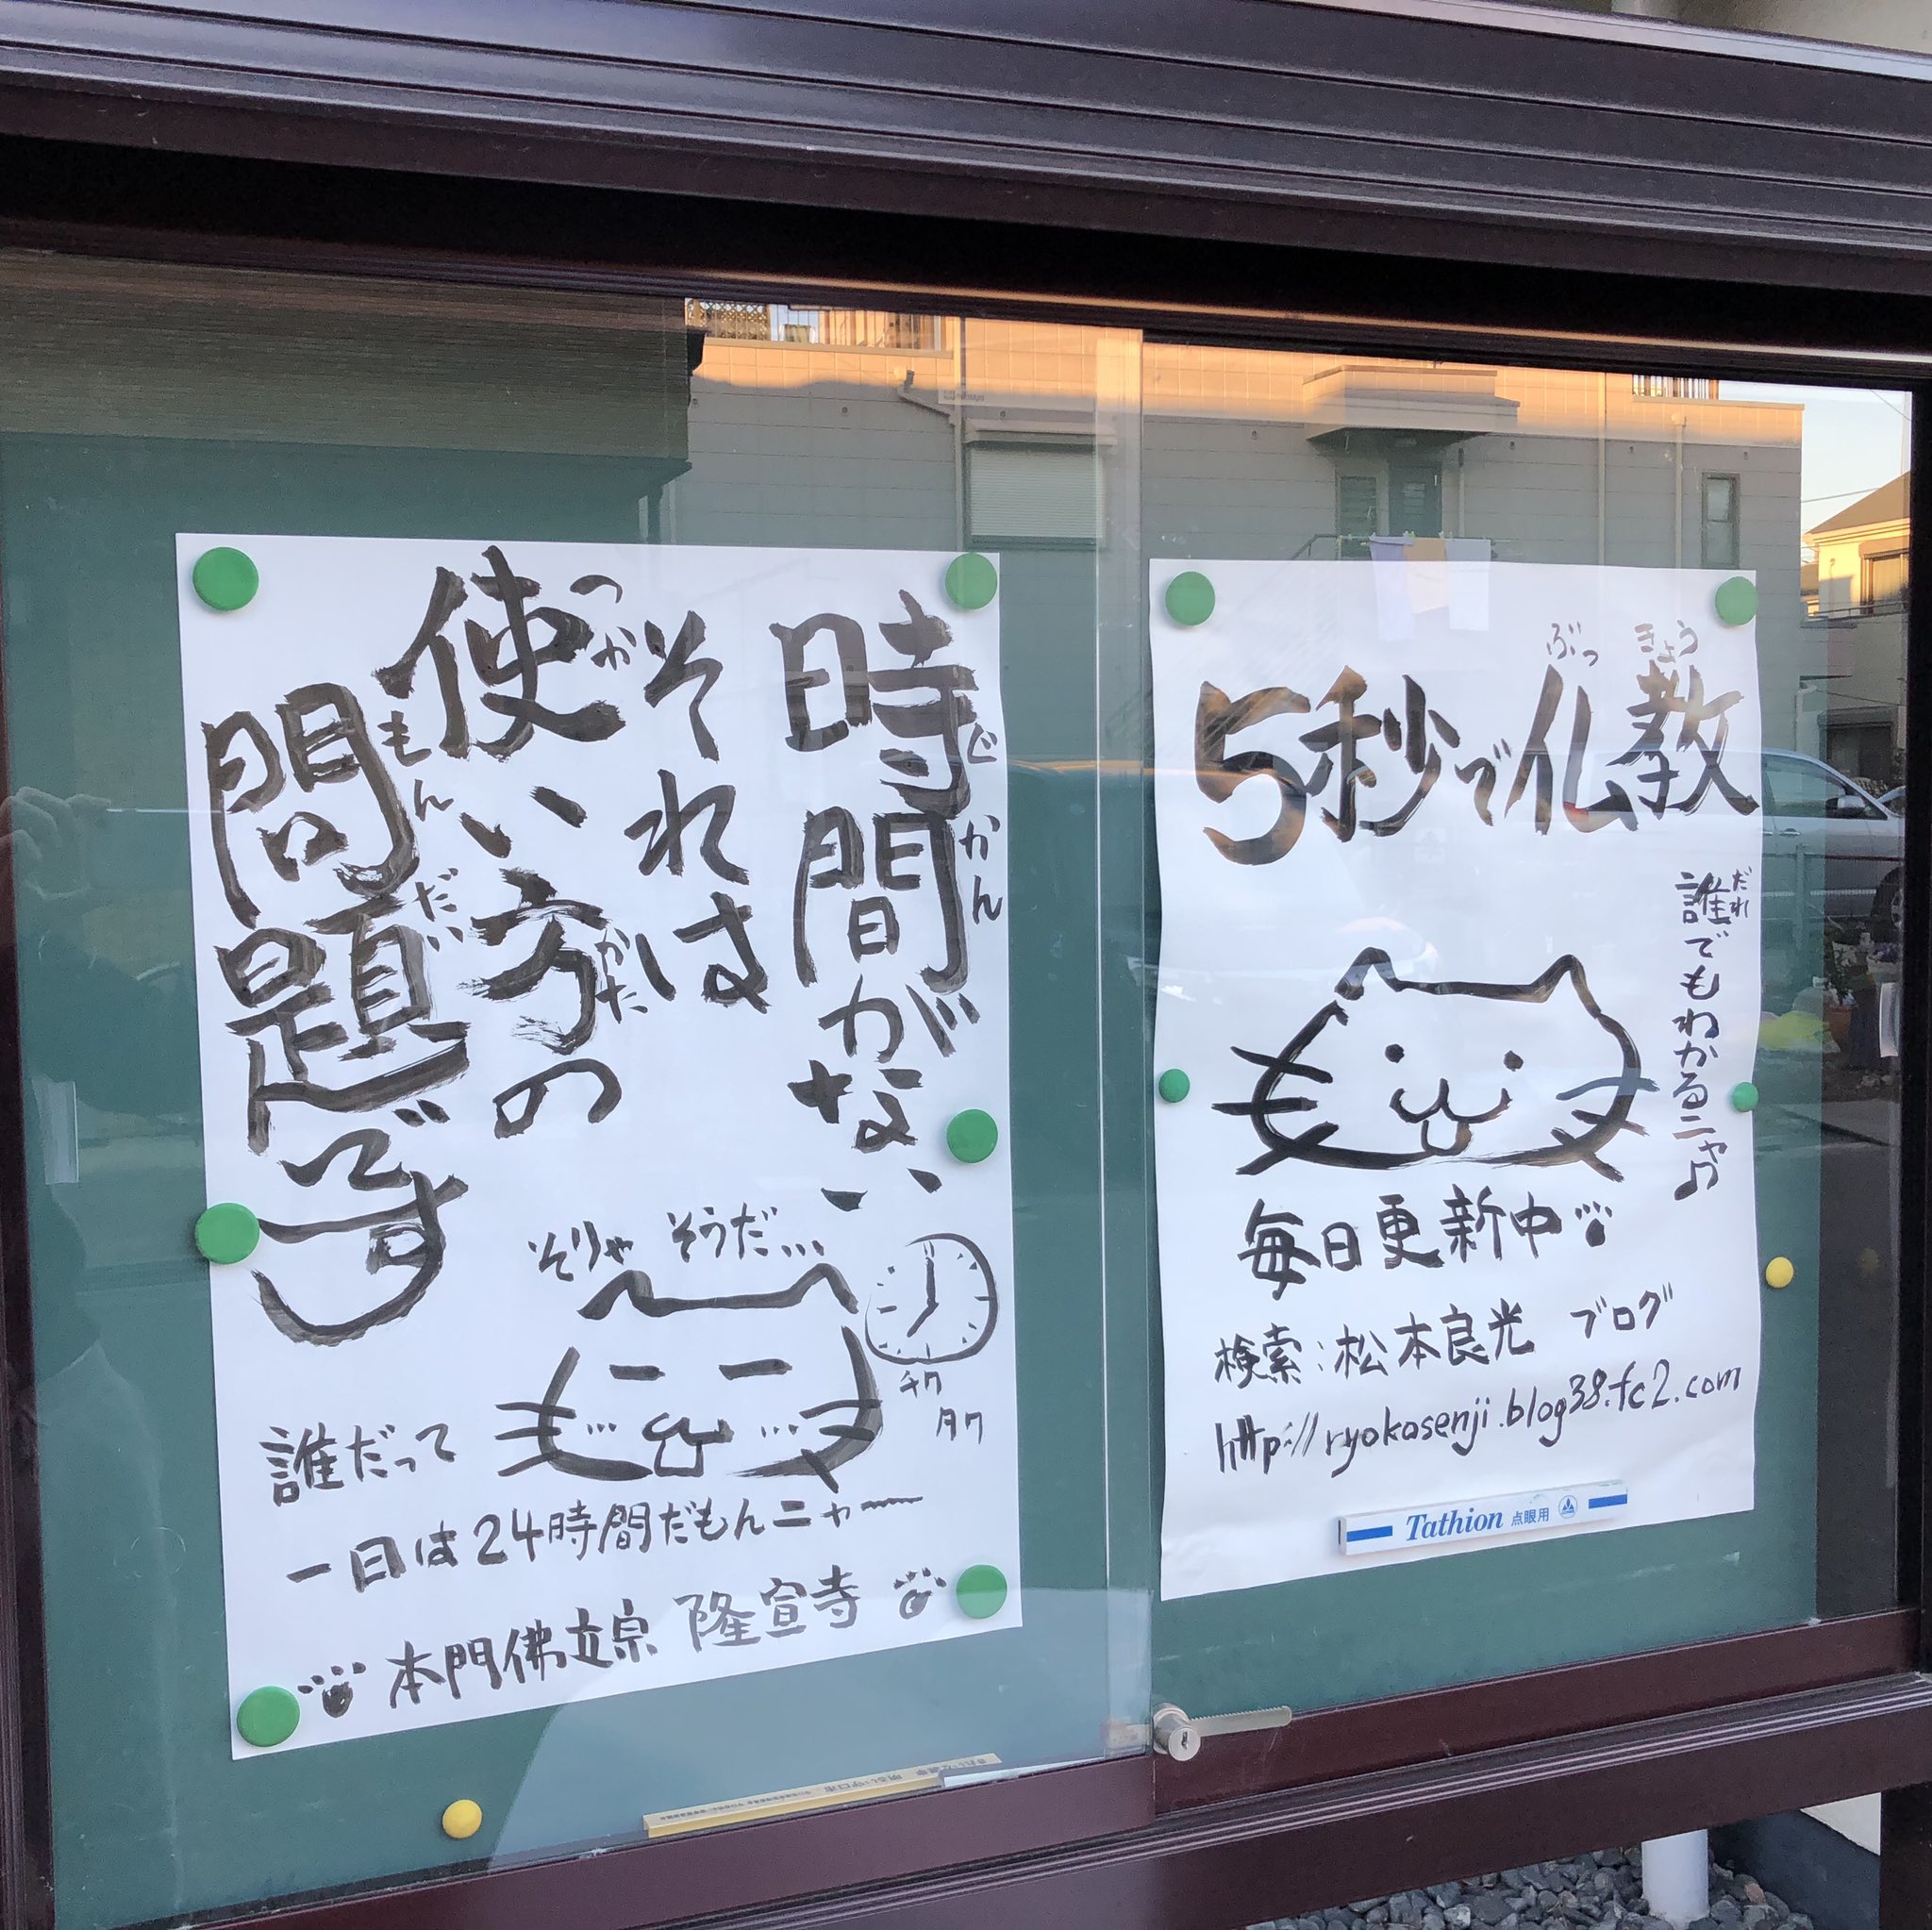 時間がない
じかん
それは
使い方の
つかかた
問題です
もんだい
そりゃ そうだ...
チク
タク
誰だって
一日は24時間だもんニャー
本門佛立宗 隆宣寺
5秒で仏教
ぶっきょう
誰でもわかるニャ♫
だれ
毎日更新中
検索:松本良光 ブログ
http://ryokosenji.blog38.fc2.com
Tathion 点眼用